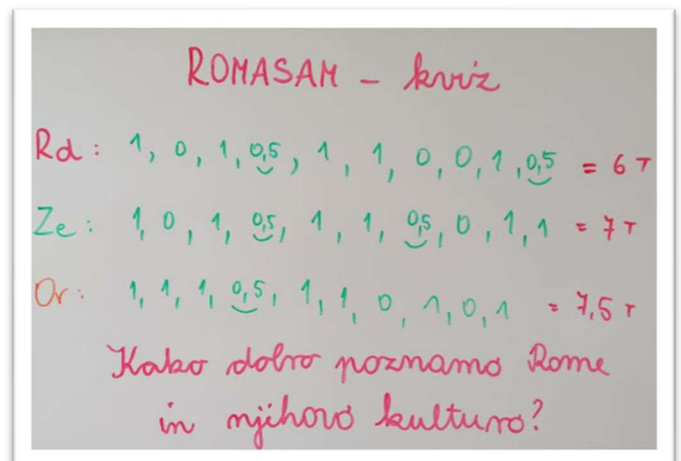 ROMASAM - kviz
Rd: 1, 0, 1, 0,5, 1, 1, 0, 0, 1, 0,5 = 6 T
Ze: 1, 0, 1, 0,5, 1, 1, 0,5, 0, 1, 1 = 7 T
Or: 1, 1, 1, 0,5, 1, 1, 0, 1, 0, 1 = 7,5 T
Kako dobro poznamo Rome
in njihovo kulturo?